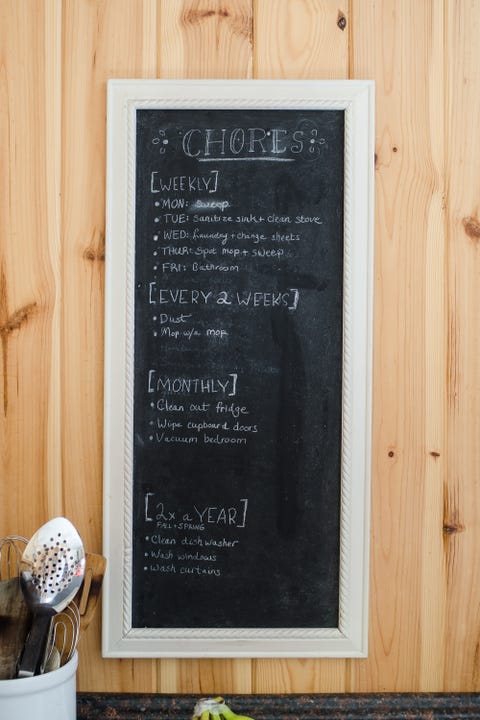 CHORES
[WEEKLY]
• MON: Sweep
• TUE: Sanitize sink + clean stove
• WED: Laundry + change sheets
• THUR: Spot mop + sweep
• FRI: Bathroom
[EVERY 2 WEEKS]
• Dust
• Mop w/a mop
[MONTHLY]
• Clean out fridge
• Wipe cupboard doors
• Vacuum bedroom
[2x a YEAR]
FALL + SPRING
• Clean dishwasher
• Wash windows
• Wash curtains